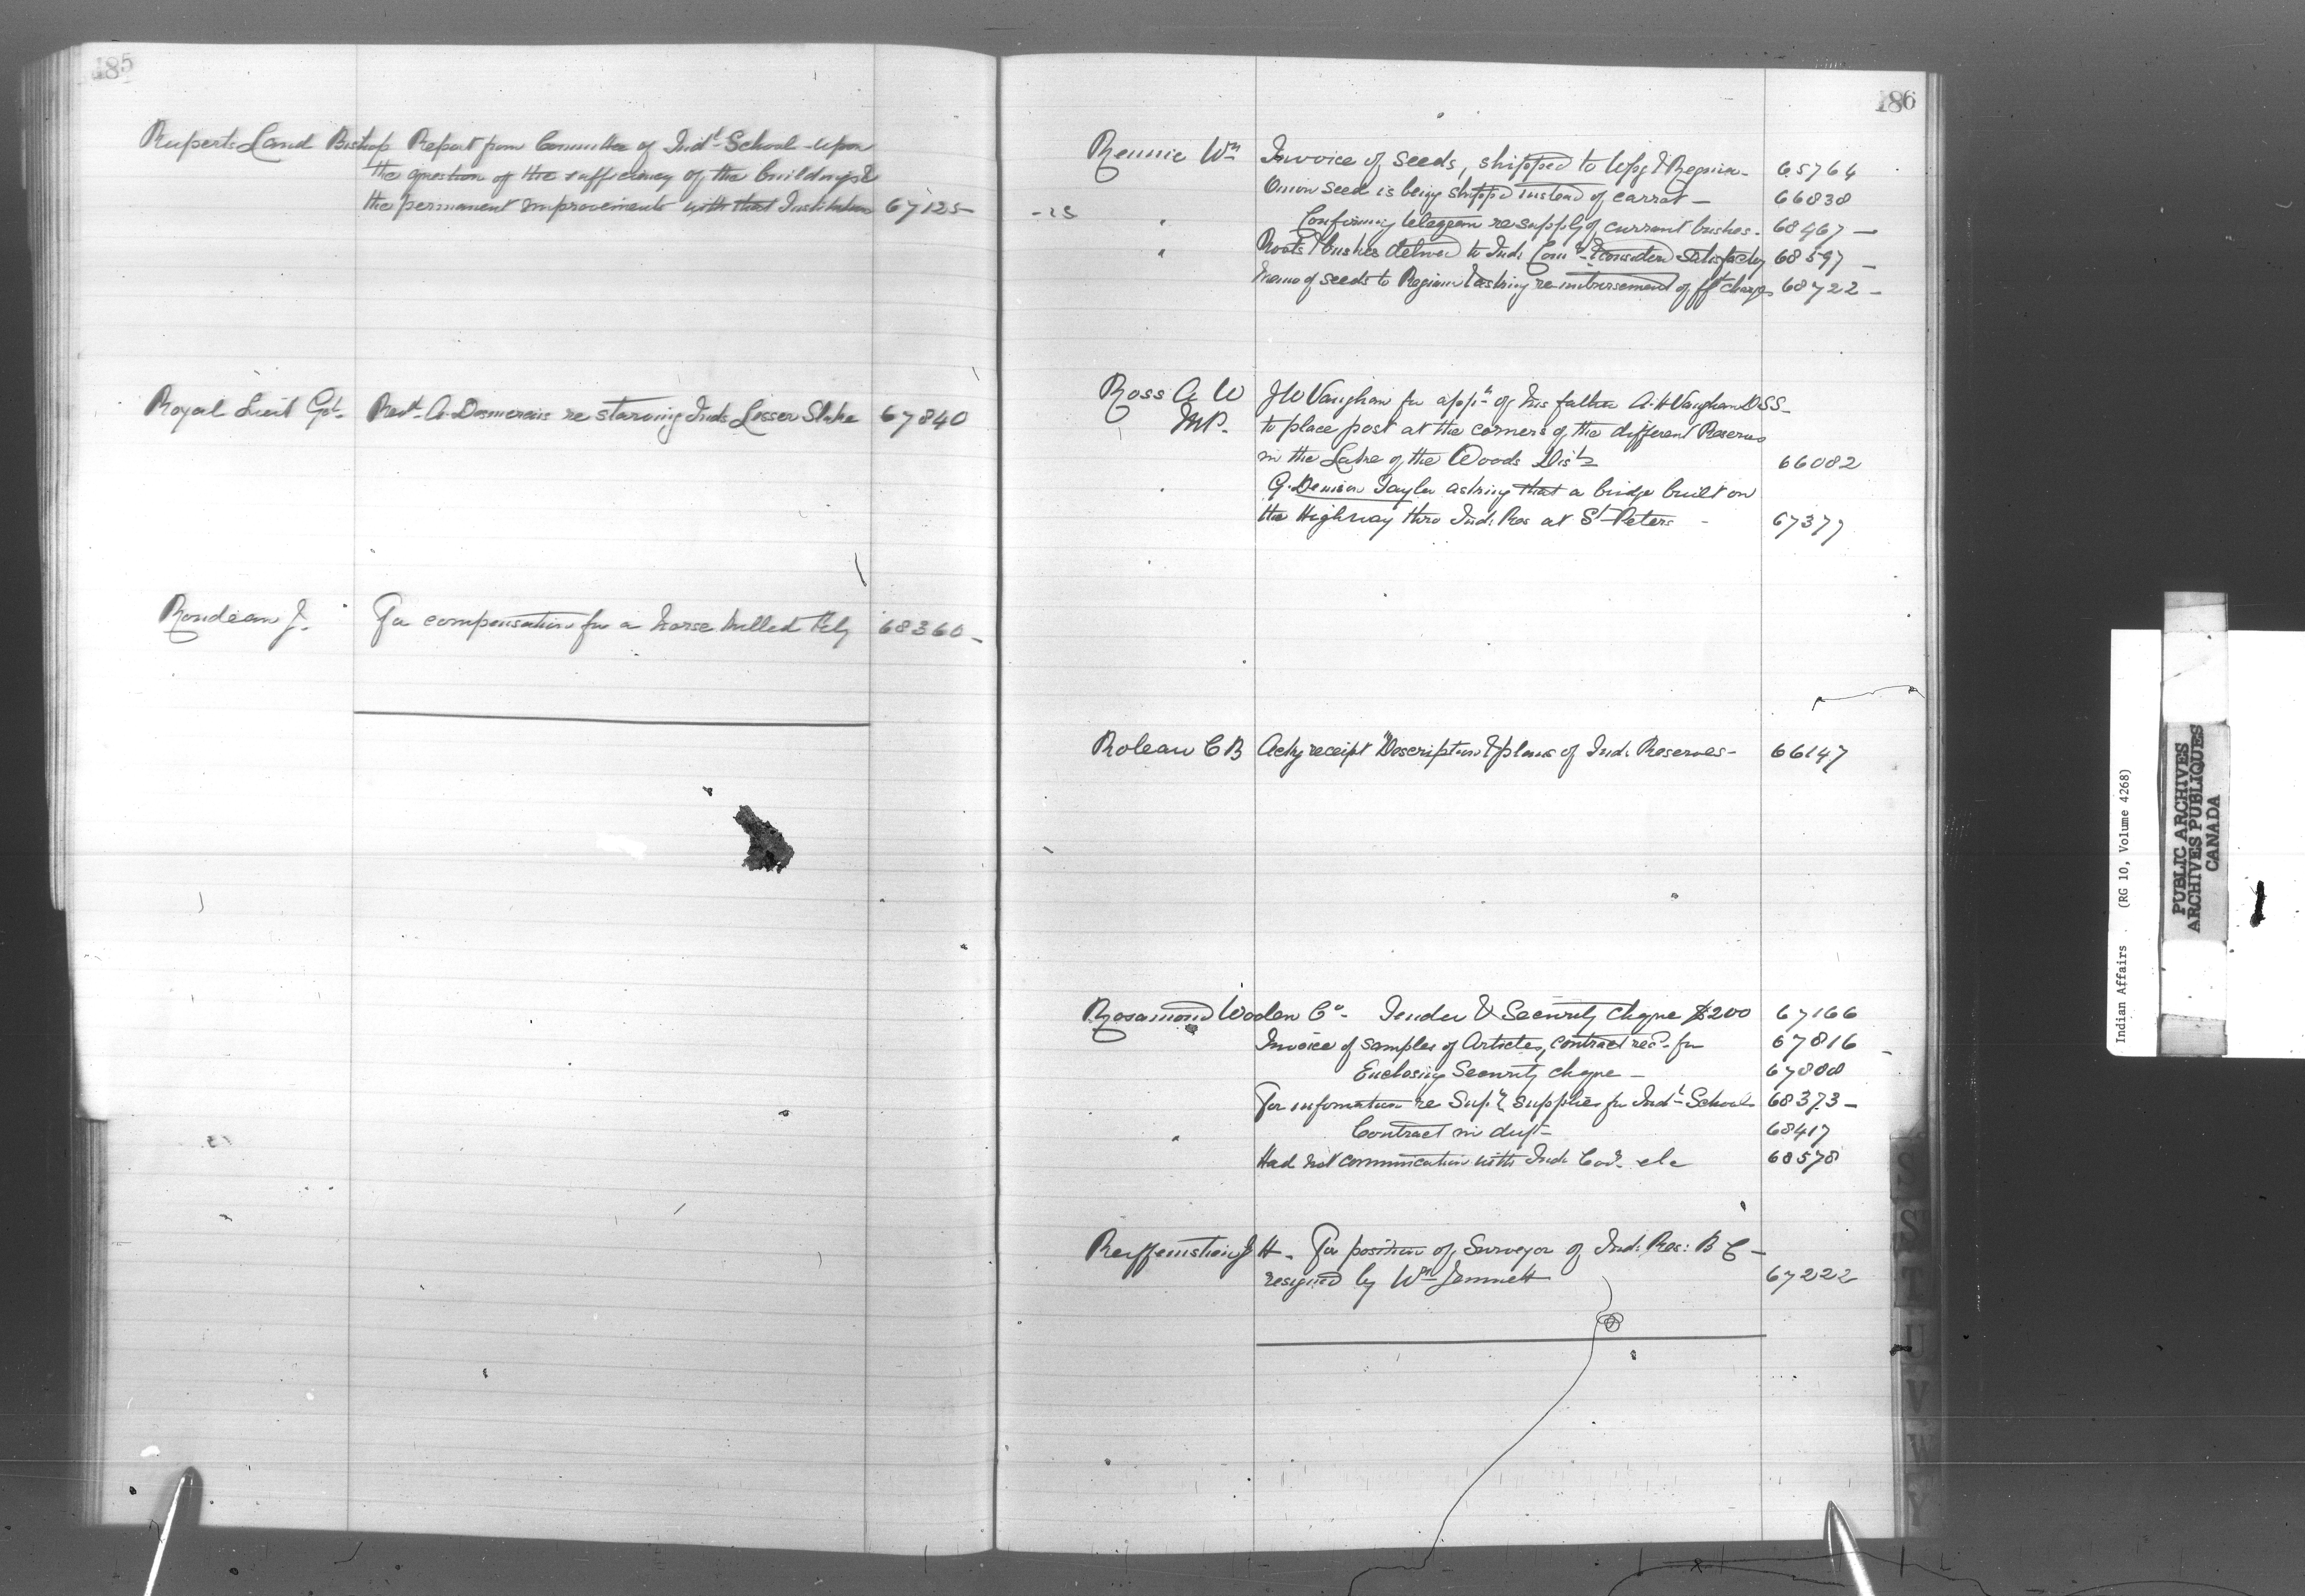 185
Ruperts Land Bishop Report from Committee of Indl School - upon
the question of the sufficiency of the buildings &
the permanent improvements with that Institution 67125 -
Royal Lieut Govr. Revd. A. Desmarais re starving Inds Lesser Slake 67840
Rondeau J. For compensation for a horse killed 68360 -
186
Rennie Wm Invoice of seeds, shipped to Wpg & Regina - 65764
Onion seed is being shipped instead of carrot - 66838
" Confirming telegram re supply of currant bushes. 68467 -
" Roots & bushes delived to Ind. Comr. & considered satisfactory 68597 -
Memo of seeds to Regina & asking re-imbursement of fft charges 68722 -
Ross A W J W Vaughan for appt. of his father A. H Vaughan DSS -
M.P. to place post at the corners of the different Reserves
in the Lake of the Woods Dist 66082
" G. Denison Taylor asking that a bridge built on
the Highway thro Ind. Res at St Peters - 67377
Roleau C B Ackg receipt "Description & plans of Ind. Reserves - 66147
Rosamond Woolen Co. Tender & Security cheque $200 67166
Invoice of samples of Articles, contract recd. for 67816 -
Enclosing Security cheque - 67808
For information re supplies for Indl School 68373 -
" Contract in dupt - 68417
Had not communication with Ind. etc 68578
Reiffenstein J H. For position of Surveyor of Ind. Res: B C -
resigned by Wm Jemmett 67222
S
S
T
U
V
W
Y
Indian Affairs . (RG 10, Volume 4268)
PUBLIC ARCHIVES
ARCHIVES PUBLIQUES
CANADA